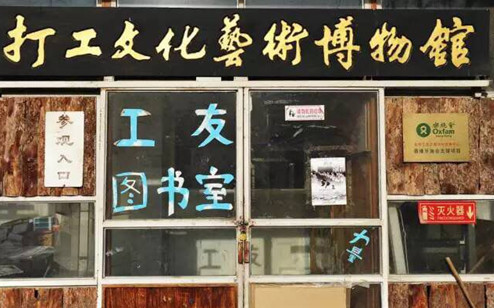 打工文化藝術博物館
参观入口
工友
图书室
力量
乐施会
Oxfam
灭火器